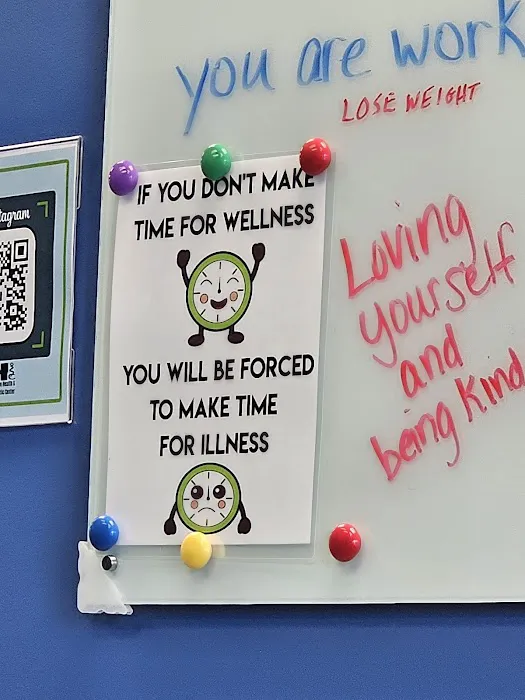 you are work
LOSE WEIGHT
IF YOU DON'T MAKE
TIME FOR WELLNESS
YOU WILL BE FORCED
TO MAKE TIME
FOR ILLNESS
Loving
yourself
and
being kind
tagram